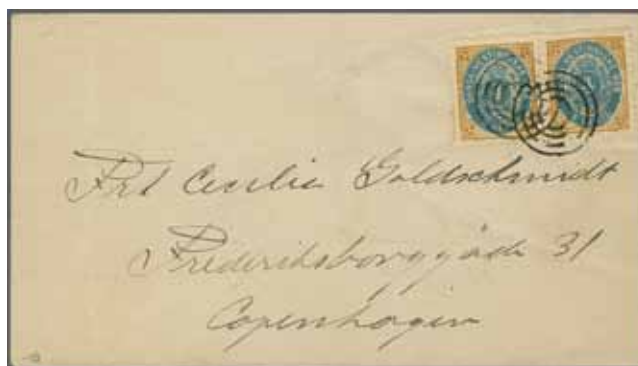 Frk Cecilia Goldschmidt
Frederiksborggade 31
Copenhagen